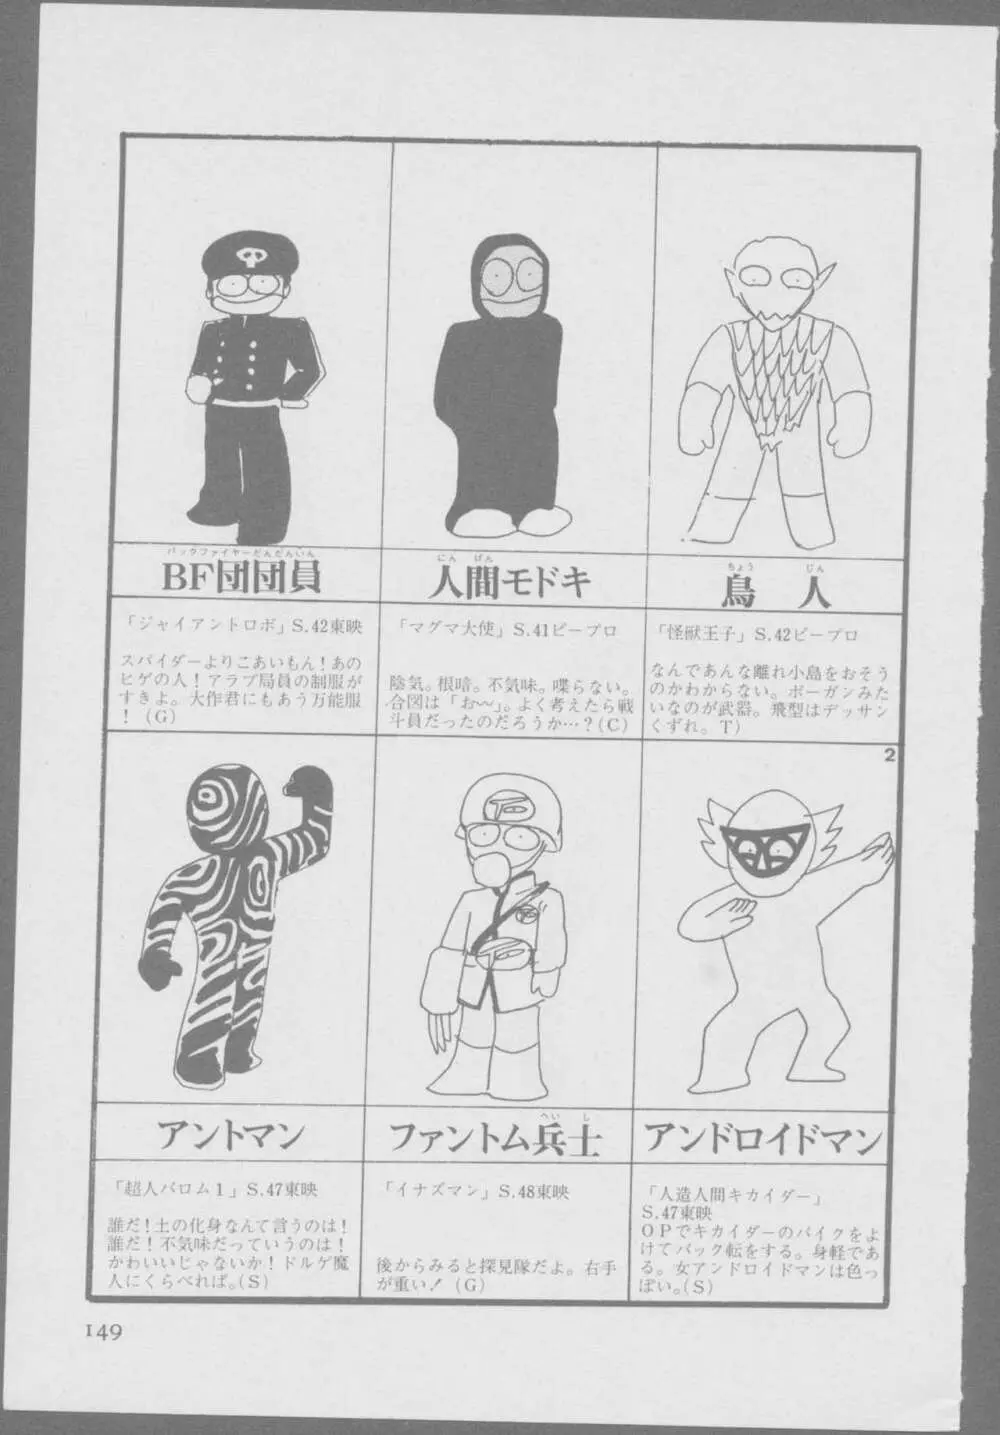 バックファイヤーだんだんいん
BF団団員
「ジャイアントロボ」S.42東映
スパイダーよりこあいもん!あの
ヒゲの人!アラブ局員の制服が
すきよ。大作君にもあう万能服
!(G)
にんげん
人間モドキ
「マグマ大使」S.41ピープロ
陰気。根暗。不気味。喋らない。
合図は「お〜〜」。よく考えたら戦
斗員だったのだろうか…?(C)
ちょうじん
鳥人
「怪獣王子」S.42ピープロ
なんであんな離れ小島をおそう
のかわからない。ボーガンみた
いなのが武器。飛型はデッサン
くずれ。T)
2
アントマン
「超人バロム1」S.47東映
誰だ!土の化身なんて言うのは!
誰だ!不気味だっていうのは!
かわいいじゃないか!ドルゲ魔
人にくらべれば。(S)
へいし
ファントム兵士
「イナズマン」S.48東映
後からみると探見隊だよ。右手
が重い!(G)
アンドロイドマン
「人造人間キカイダー」
S.47東映
OPでキカイダーのバイクをよ
けてバック転をする。身軽であ
る。女アンドロイドマンは色っ
ぽい。(S)
149